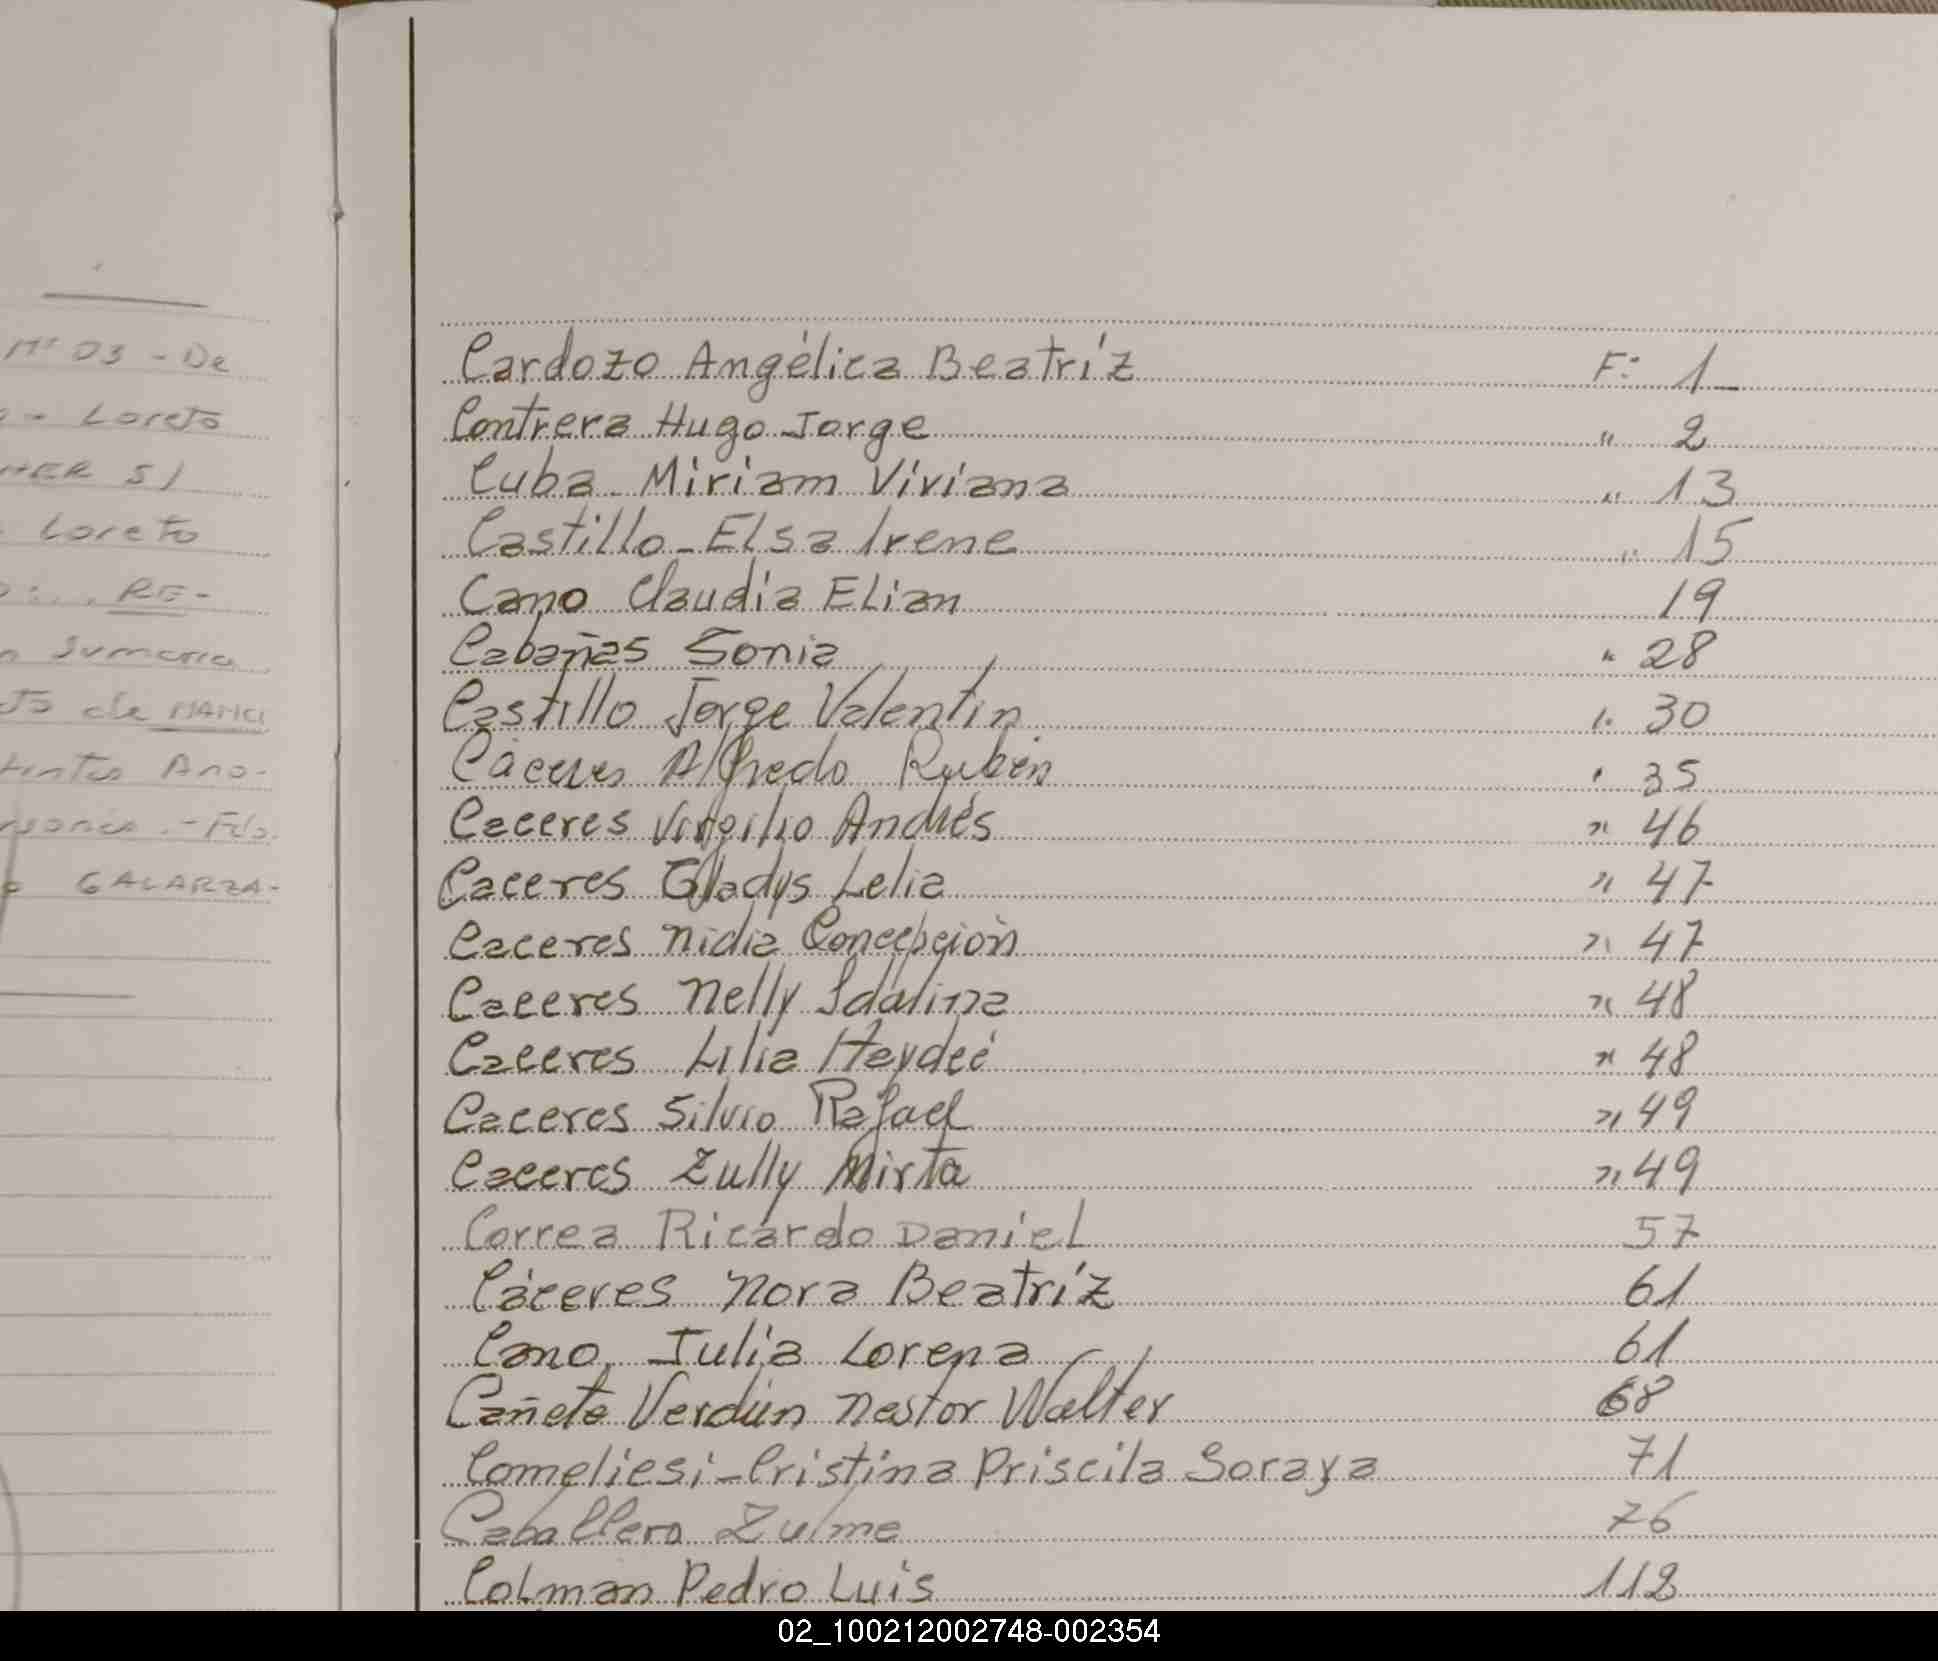 N° 03 - De
- Loreto
HER S/
Loreto
RE-
Sumaria
de MAMCI
Ano-
- Fdo.
GALARZA-
Cardozo Angélica Beatríz F: 1
Contrera Hugo Jorge " 2
Cuba Miriam Viviana " 13
Castillo - Elsa Irene " 15
Cano Claudia ELian 19
Cabañas Sonia " 28
Castillo Jorge Valentín " 30
Cáceres Alfredo Rubén " 35
Caceres Virgilio Andrés " 46
Caceres Gladys Lelia " 47
Caceres Nidia Concepción " 47
Caceres Nelly Idalina " 48
Caceres Lilia Heydeé " 48
Caceres Silvio Rafael " 49
Caceres Zully Mirta " 49
Correa Ricardo Daniel 57
Cáceres Nora Beatríz 61
Cano, Julia Lorena 61
Cañete Verdún Nestor Walter 68
Comeliesi - Cristina Priscila Soraya 71
Caballero Zulma 76
Colman Pedro Luis 112
02_100212002748-002354